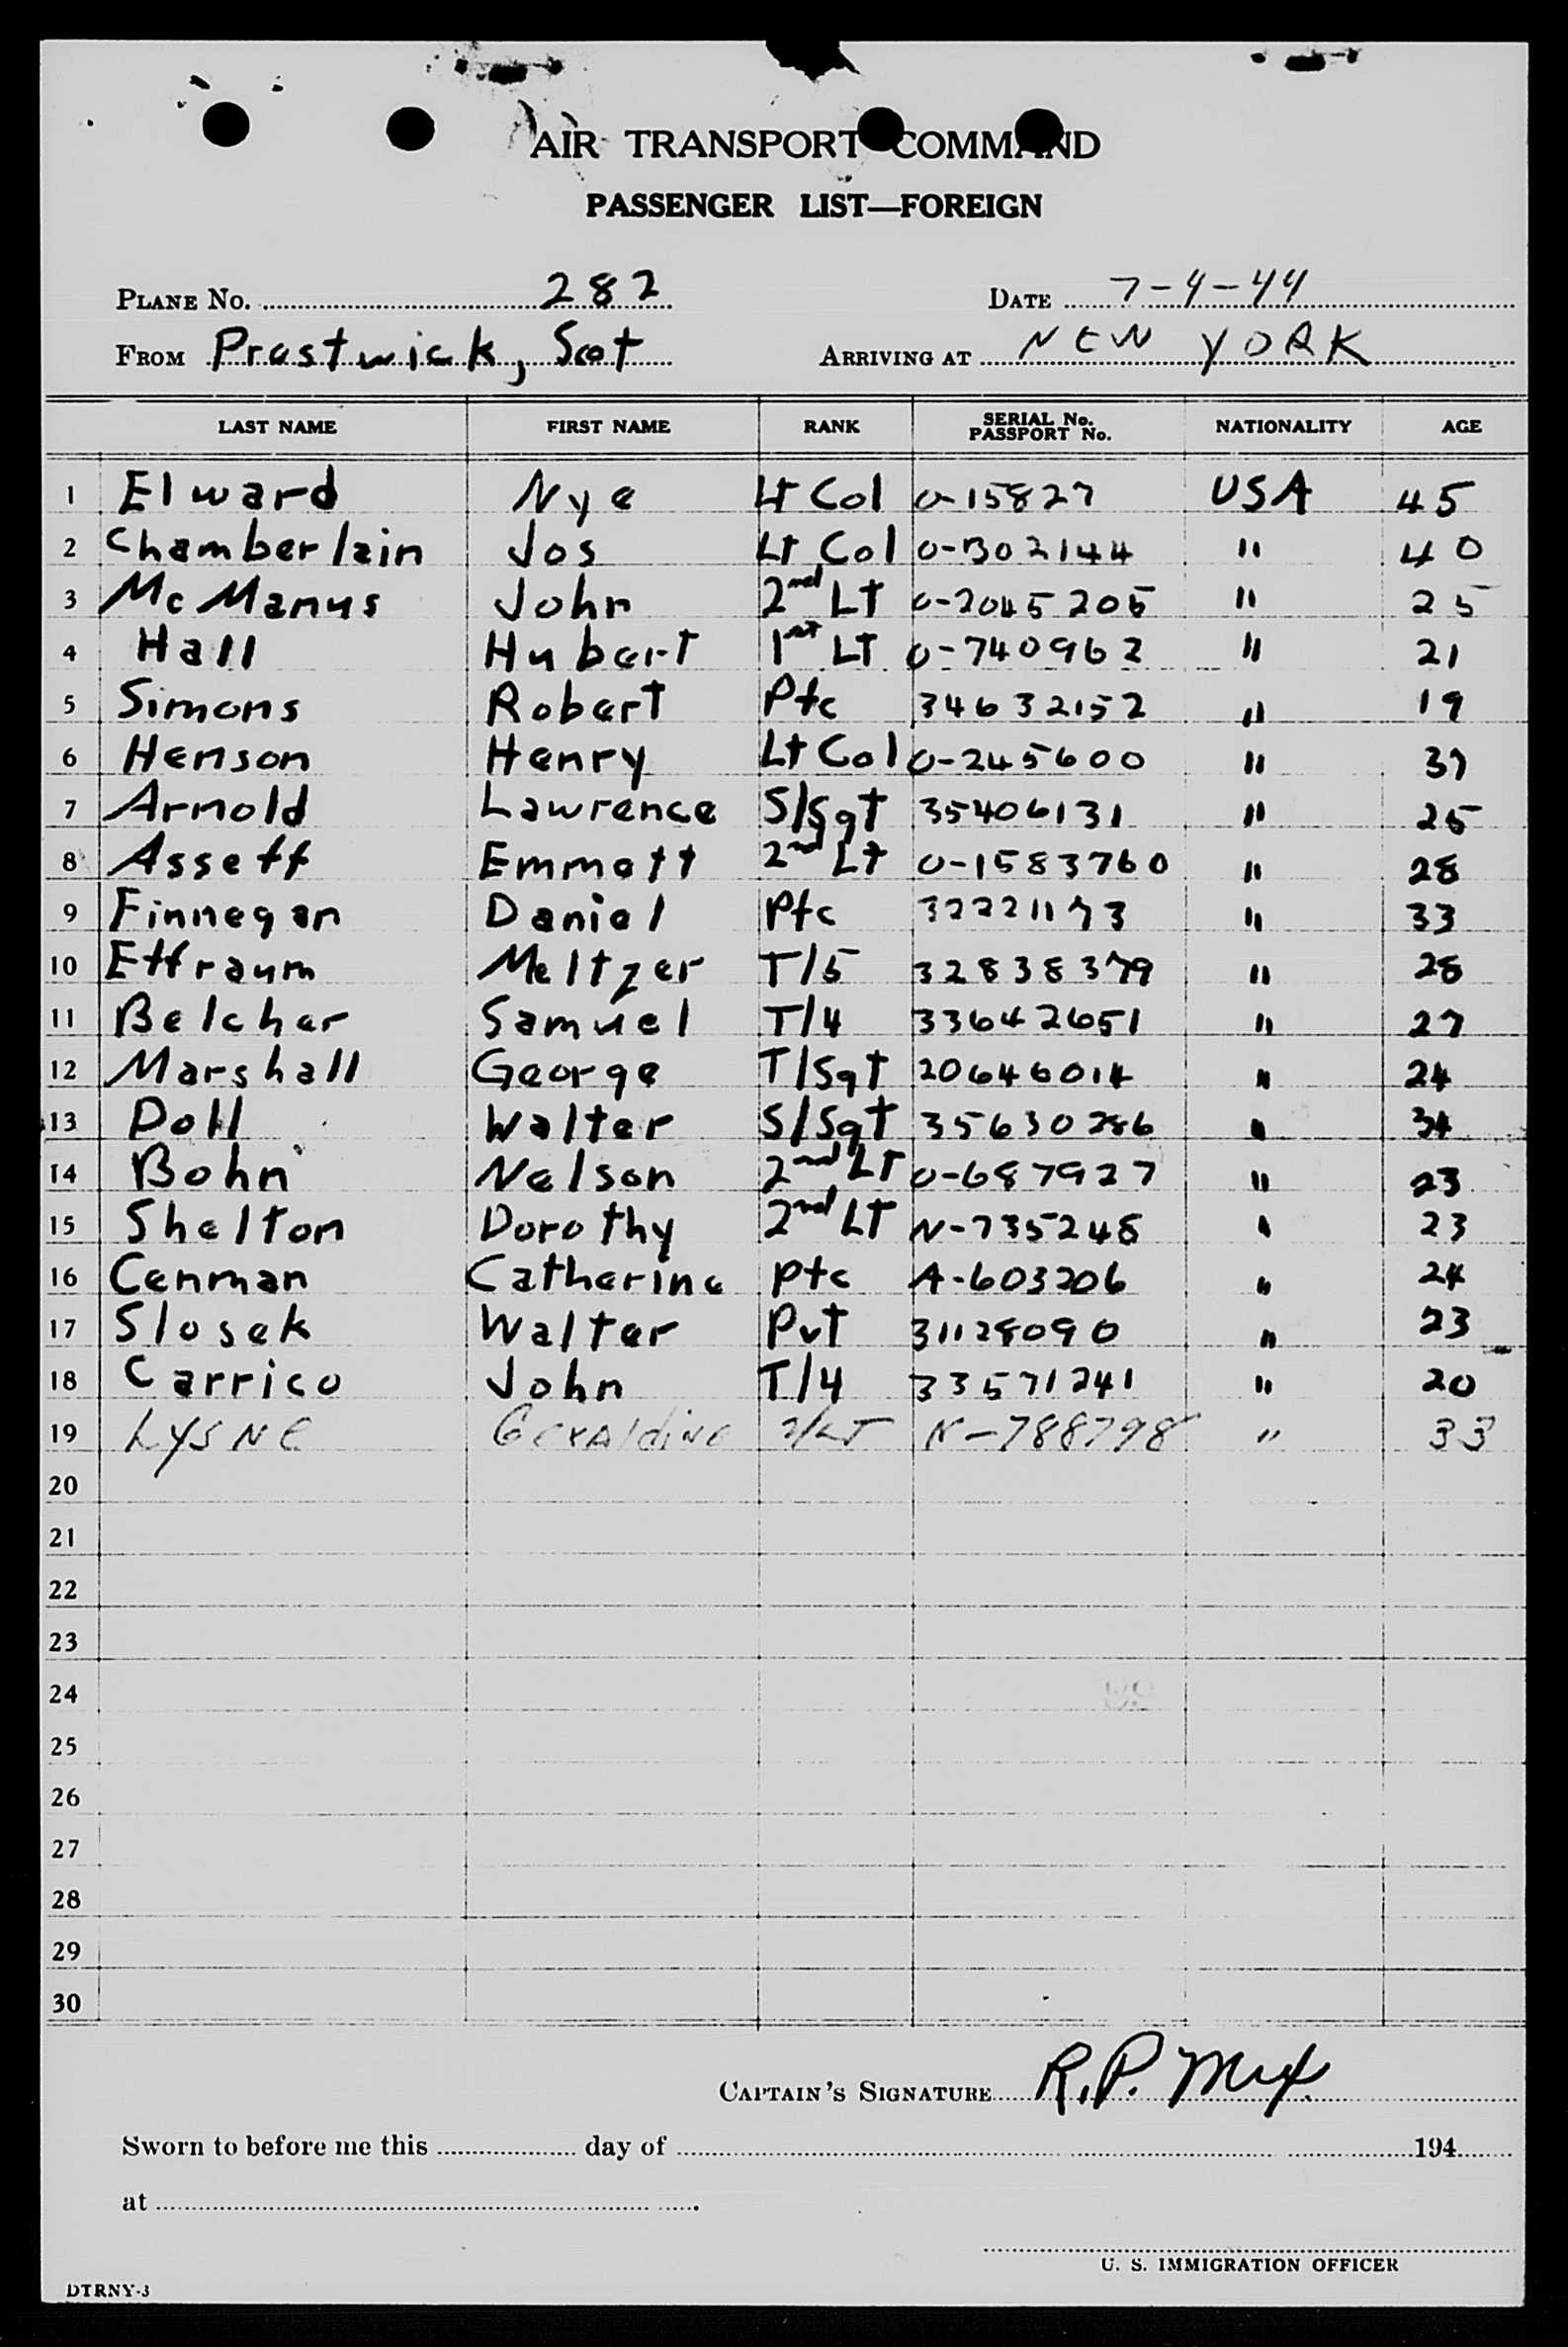 AIR TRANSPORT COMMAND
PASSENGER LIST—FOREIGN
PLANE No. 282 DATE 7-4-44
FROM Prestwick, Scot ARRIVING AT NEW YORK
LAST NAME FIRST NAME RANK SERIAL No. PASSPORT No. NATIONALITY AGE
1 Elward Nye Lt Col O-15827 USA 45
2 Chamberlain Jos Lt Col O-302144 " 40
3 McManus John 2nd LT O-2045205 " 25
4 Hall Hubert 1st LT O-740962 " 21
5 Simons Robert Pfc 34632152 " 19
6 Henson Henry Lt Col O-245600 " 37
7 Arnold Lawrence S/Sgt 35406131 " 25
8 Asseff Emmett 2nd Lt O-1583760 " 28
9 Finnegan Daniel Pfc 32221173 " 33
10 Effraum Meltzer T/5 32838379 " 28
11 Belcher Samuel T/4 33642651 " 27
12 Marshall George T/Sgt 20646014 " 24
13 Doll Walter S/Sgt 35630286 " 34
14 Bohn Nelson 2nd LT O-687927 " 23
15 Shelton Dorothy 2nd LT N-735248 " 23
16 Cenman Catherine Pfc A-603206 " 24
17 Slosek Walter Pvt 31128090 " 23
18 Carrico John T/4 33571241 " 20
19 LYSNE GERAldiNe 2/LT N-788798 " 33
20
21
22
23
24
25
26
27
28
29
30
CAPTAIN'S SIGNATURE R.P. Mix
Sworn to before me this day of 194
at
U. S. IMMIGRATION OFFICER
DTRNY-3